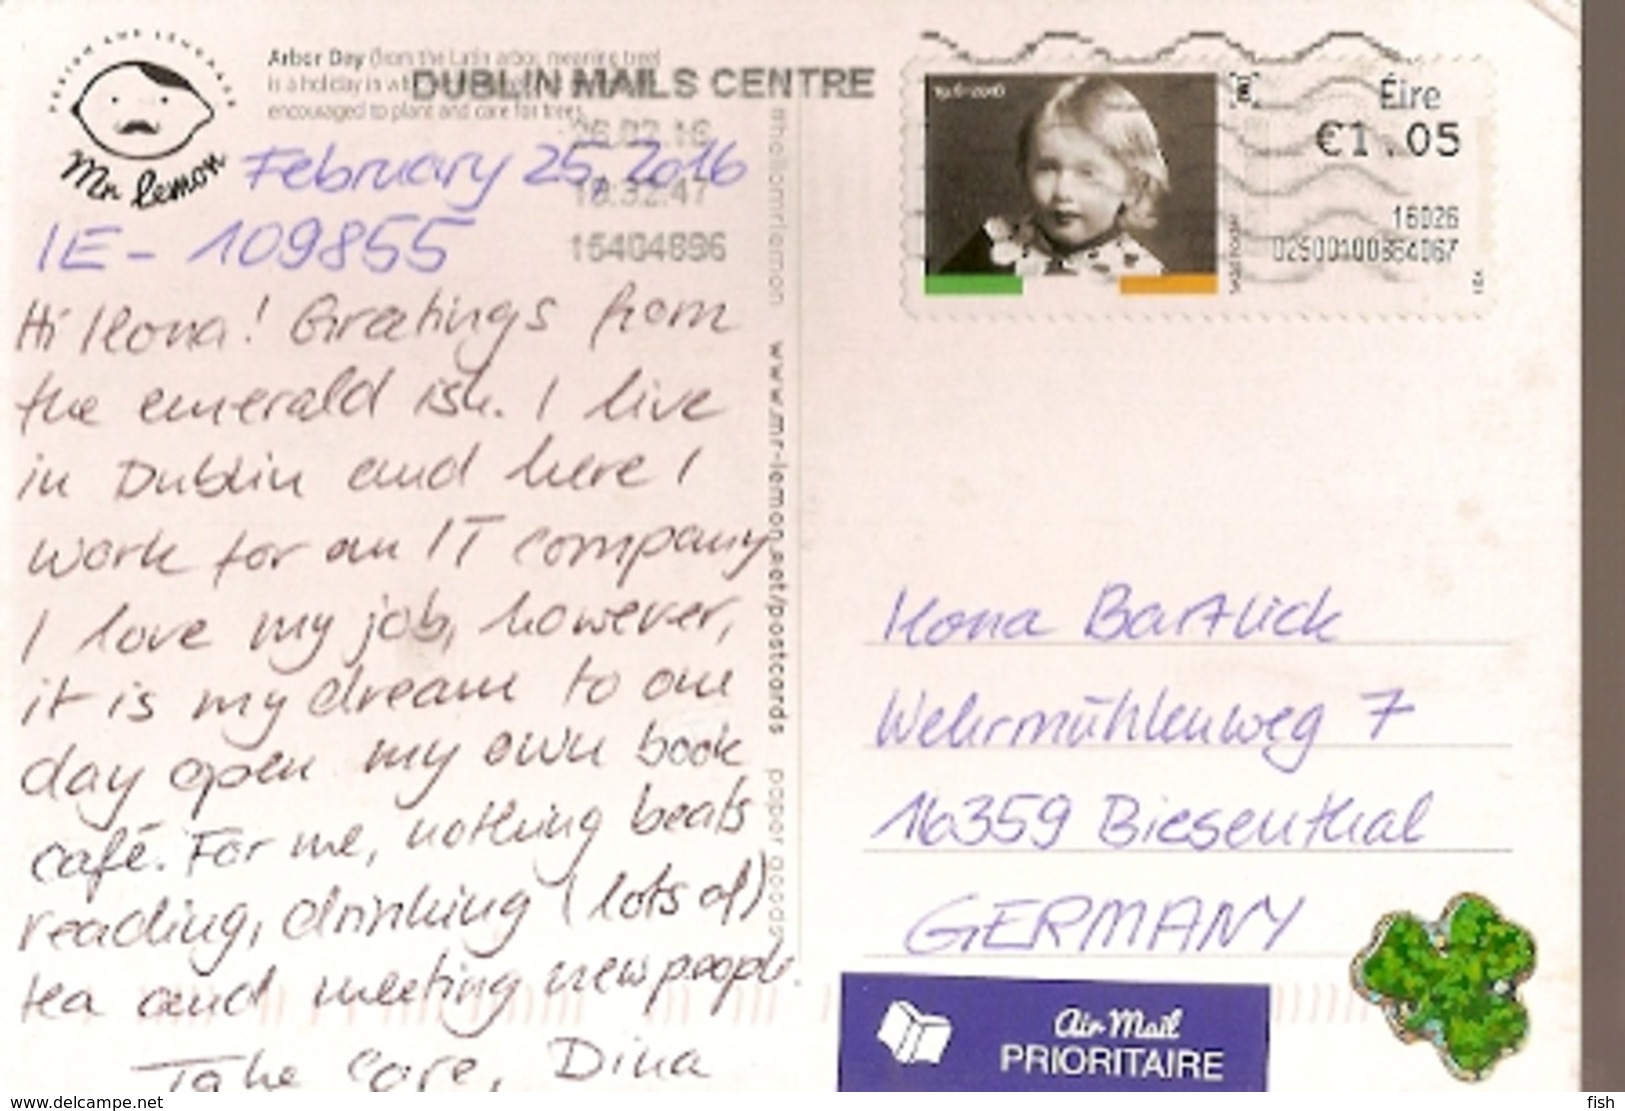 DESIGN AND LEMONADE
Mr lemon
Arbor Day (from the Latin arbor, meaning tree)
is a holiday in
encouraged to plant and care for trees.
DUBLIN MAILS CENTRE
26.02.16
18:32:47
15404896
February 25, 2016
IE - 109855
Hi Ilona! Greetings from
the emerald isle. I live
in Dublin and here I
work for an IT company
I love my job, however,
it is my dream to one
day open my own book
café. For me, nothing beats
reading, drinking (lots of)
tea and meeting new people.
Take care, Dina
www.mr-lemon.net/postcards
paper goods
1916-2016
Éire
€1.05
16026
Ilona Bartlick
Wehrmühlenweg 7
16359 Biesenthal
GERMANY
Air Mail
PRIORITAIRE
www.delcampe.net
fish